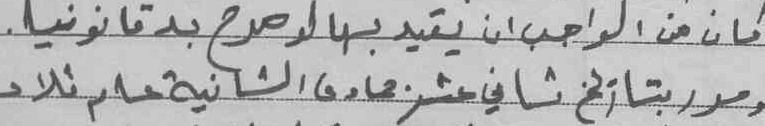 كان من الواجب ان يقيد بها لو صرح به قانونيا.
وصدر بتاريخ ثاني عشر جمادى الثانية عام ثلاث